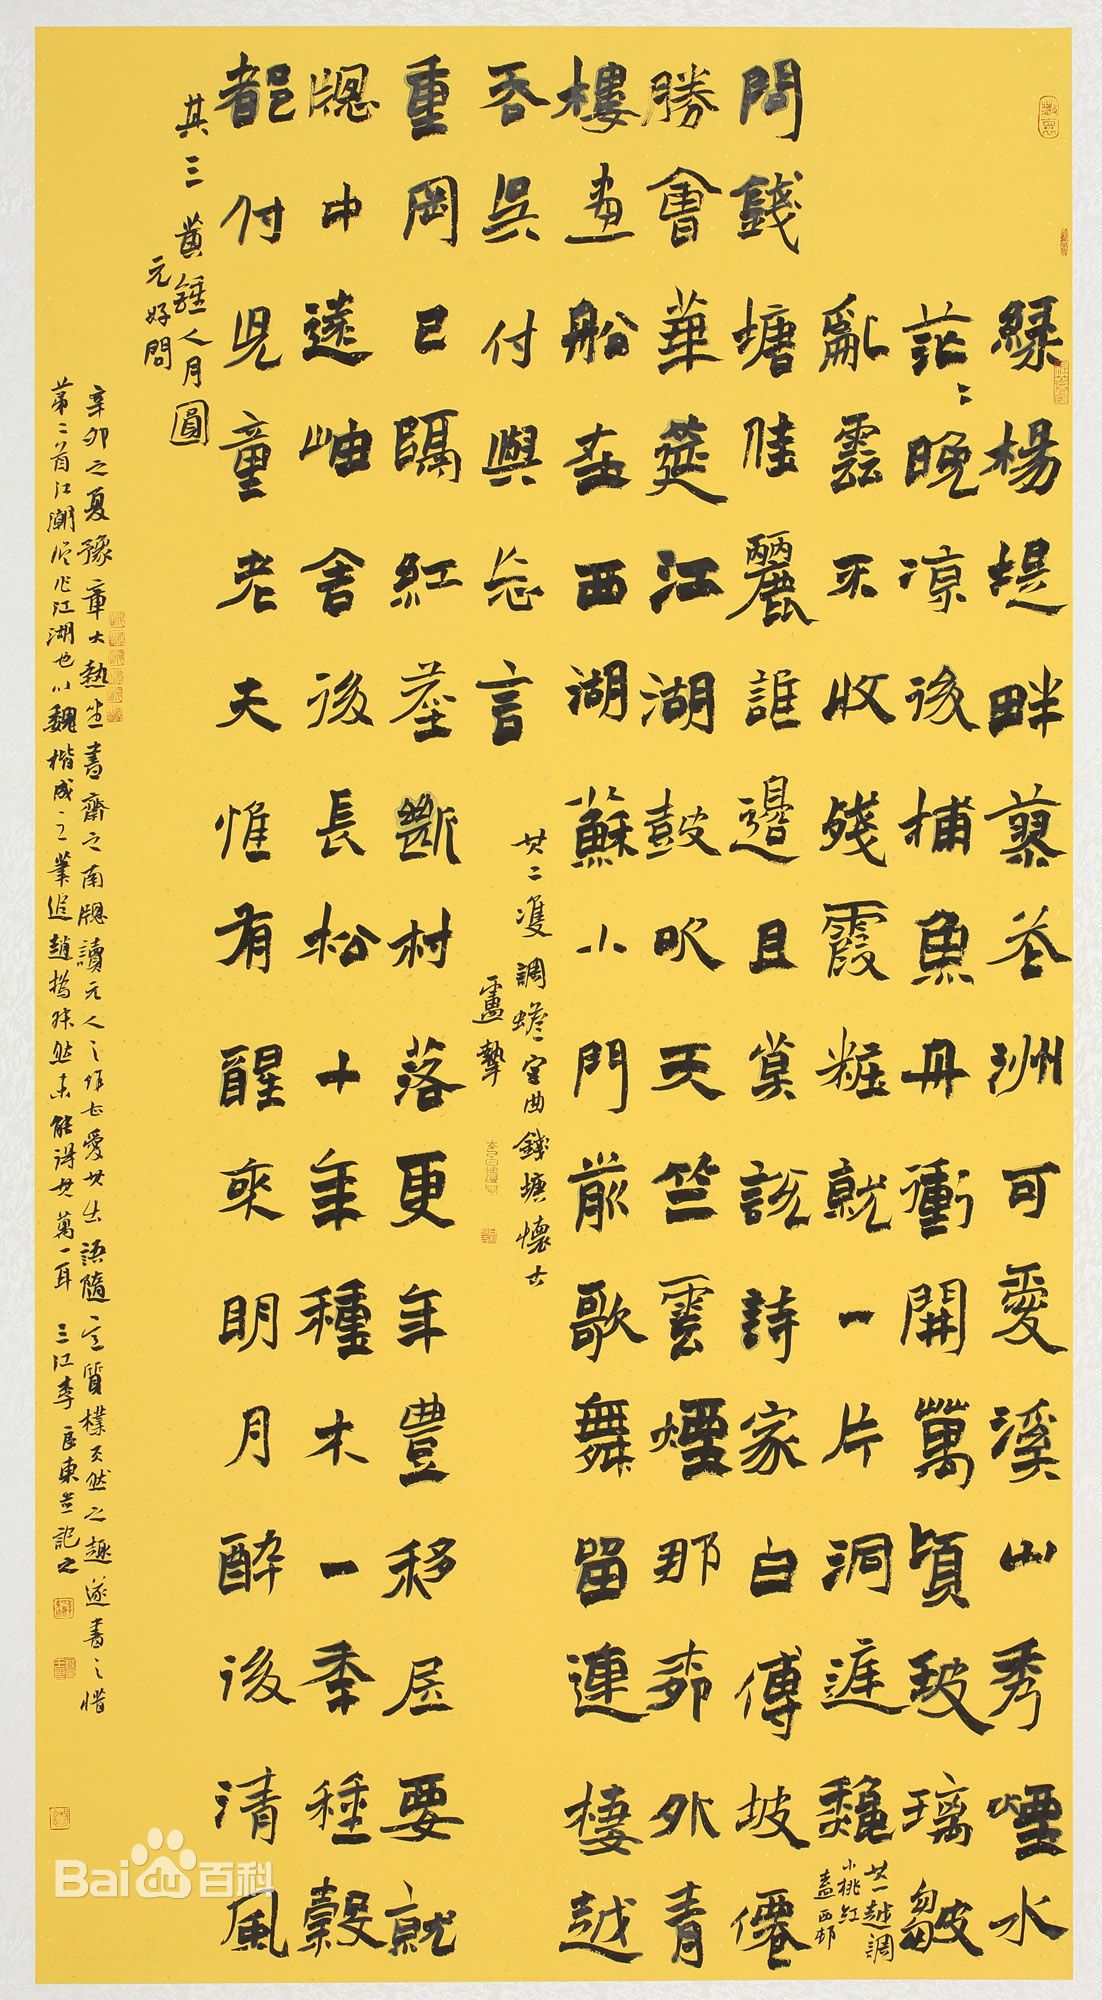 綠楊堤畔蓼花洲可愛溪山秀煙水
茫〻晚凉後捕魚舟衝開萬頃玻璃皺
亂雲不收殘霞粧就一片洞庭秋
其一越調
小桃紅
盍西邨
問錢塘佳麗誰邊且莫說詩家白傅坡僊
勝會華筵江湖鼓吹天竺雲煙那柳外青
樓畫船在西湖蘇小門前歌舞留連棲越
吞吳付與忘言
其二雙調蟾宮曲錢塘懷古
盧摯
重岡已隔紅塵斷村落更年豊移居要就
窻中遠岫舍後長松十年種木一年種穀
都付兒童老夫惟有醒來明月醉後清風
其三黃鐘人月圓
元好問
辛卯之夏豫章大熱坐書齋之南窻讀元人之作甚愛其出語隨意質樸天然之趣遂書之惜
第二首江潮誤作江湖也以魏楷成之筆追趙撝叔然未能得其萬一耳 三江李良東並記之
Bai百科